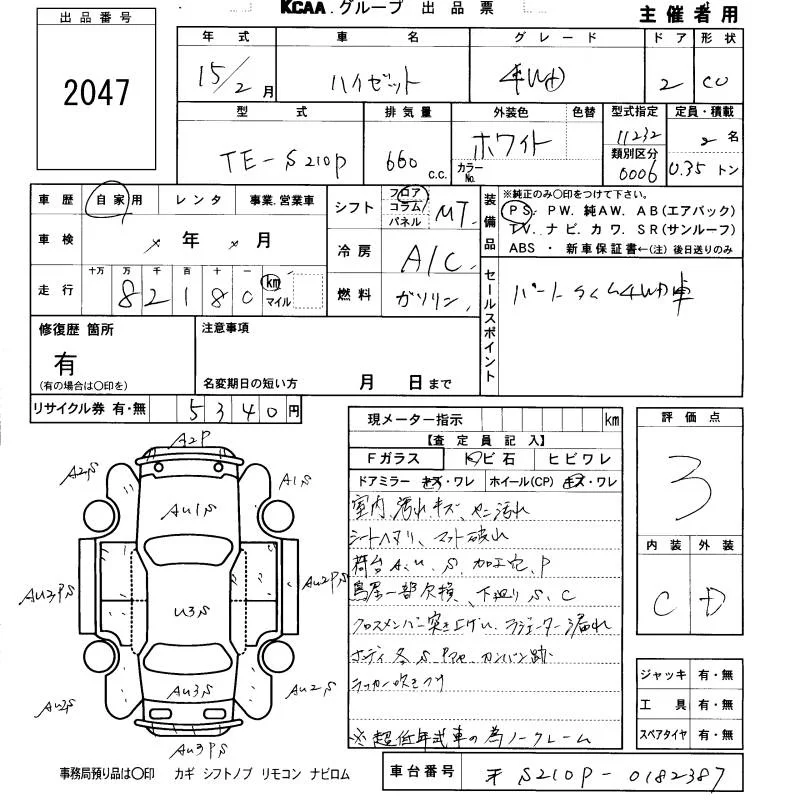 KCAA.グループ 出品票
主催者用
出品番号
2047
年式 車名 グレード ドア 形状
15/2月 ハイゼット 4WD 2 CO
型式 排気量 外装色 色替 型式指定 定員・積載
TE-S210P 660 c.c. ホワイト カラーNo. 11232 類別区分 0006 2名 0.35トン
車歴 自家用 レンタ 事業.営業車
車検 × 年 × 月
走行 十万 万 千 百 十 一
8 2 1 8 0 km マイル
シフト フロア コラム パネル MT
冷房 A/C
燃料 ガソリン
装備品 ※純正のみ○印をつけて下さい。
PS. PW. 純AW. AB(エアバック)
TV. ナビ. カワ. SR(サンルーフ)
ABS ・ 新車保証書←(注)後日送りのみ
セールスポイント
パートタイム4WD車
修復歴 箇所
有
(有の場合は○印を)
注意事項
名変期日の短い方 月 日まで
リサイクル券 有・無 5340円
現メーター指示 km
【査定員記入】
Fガラス トビ石 ヒビワレ
ドアミラー キズ・ワレ ホイール(CP) キズ・ワレ
室内、汚れ、キズ、ヤニ汚れ
シートヘタリ、マット破れ
荷台AU、S、加工穴、P
鳥居一部欠損、下廻りS、C
クロスメンバー突き上げU、ラジエーター漏れ
ボディ各S Pアセ カンバン跡
ラッカー吹きつけ
※超低年式車の為ノークレーム
評価点
3
内装 外装
C D
ジャッキ 有・無
工具 有・無
スペアタイヤ 有・無
A2P
A2S
A1S
Au1S
Au3PS
U3S
Au2PS
Au2S
Au3S
Au2S
Au3PS
事務局預り品は○印 カギ シフトノブ リモコン ナビロム
車台番号 S210P-0182387